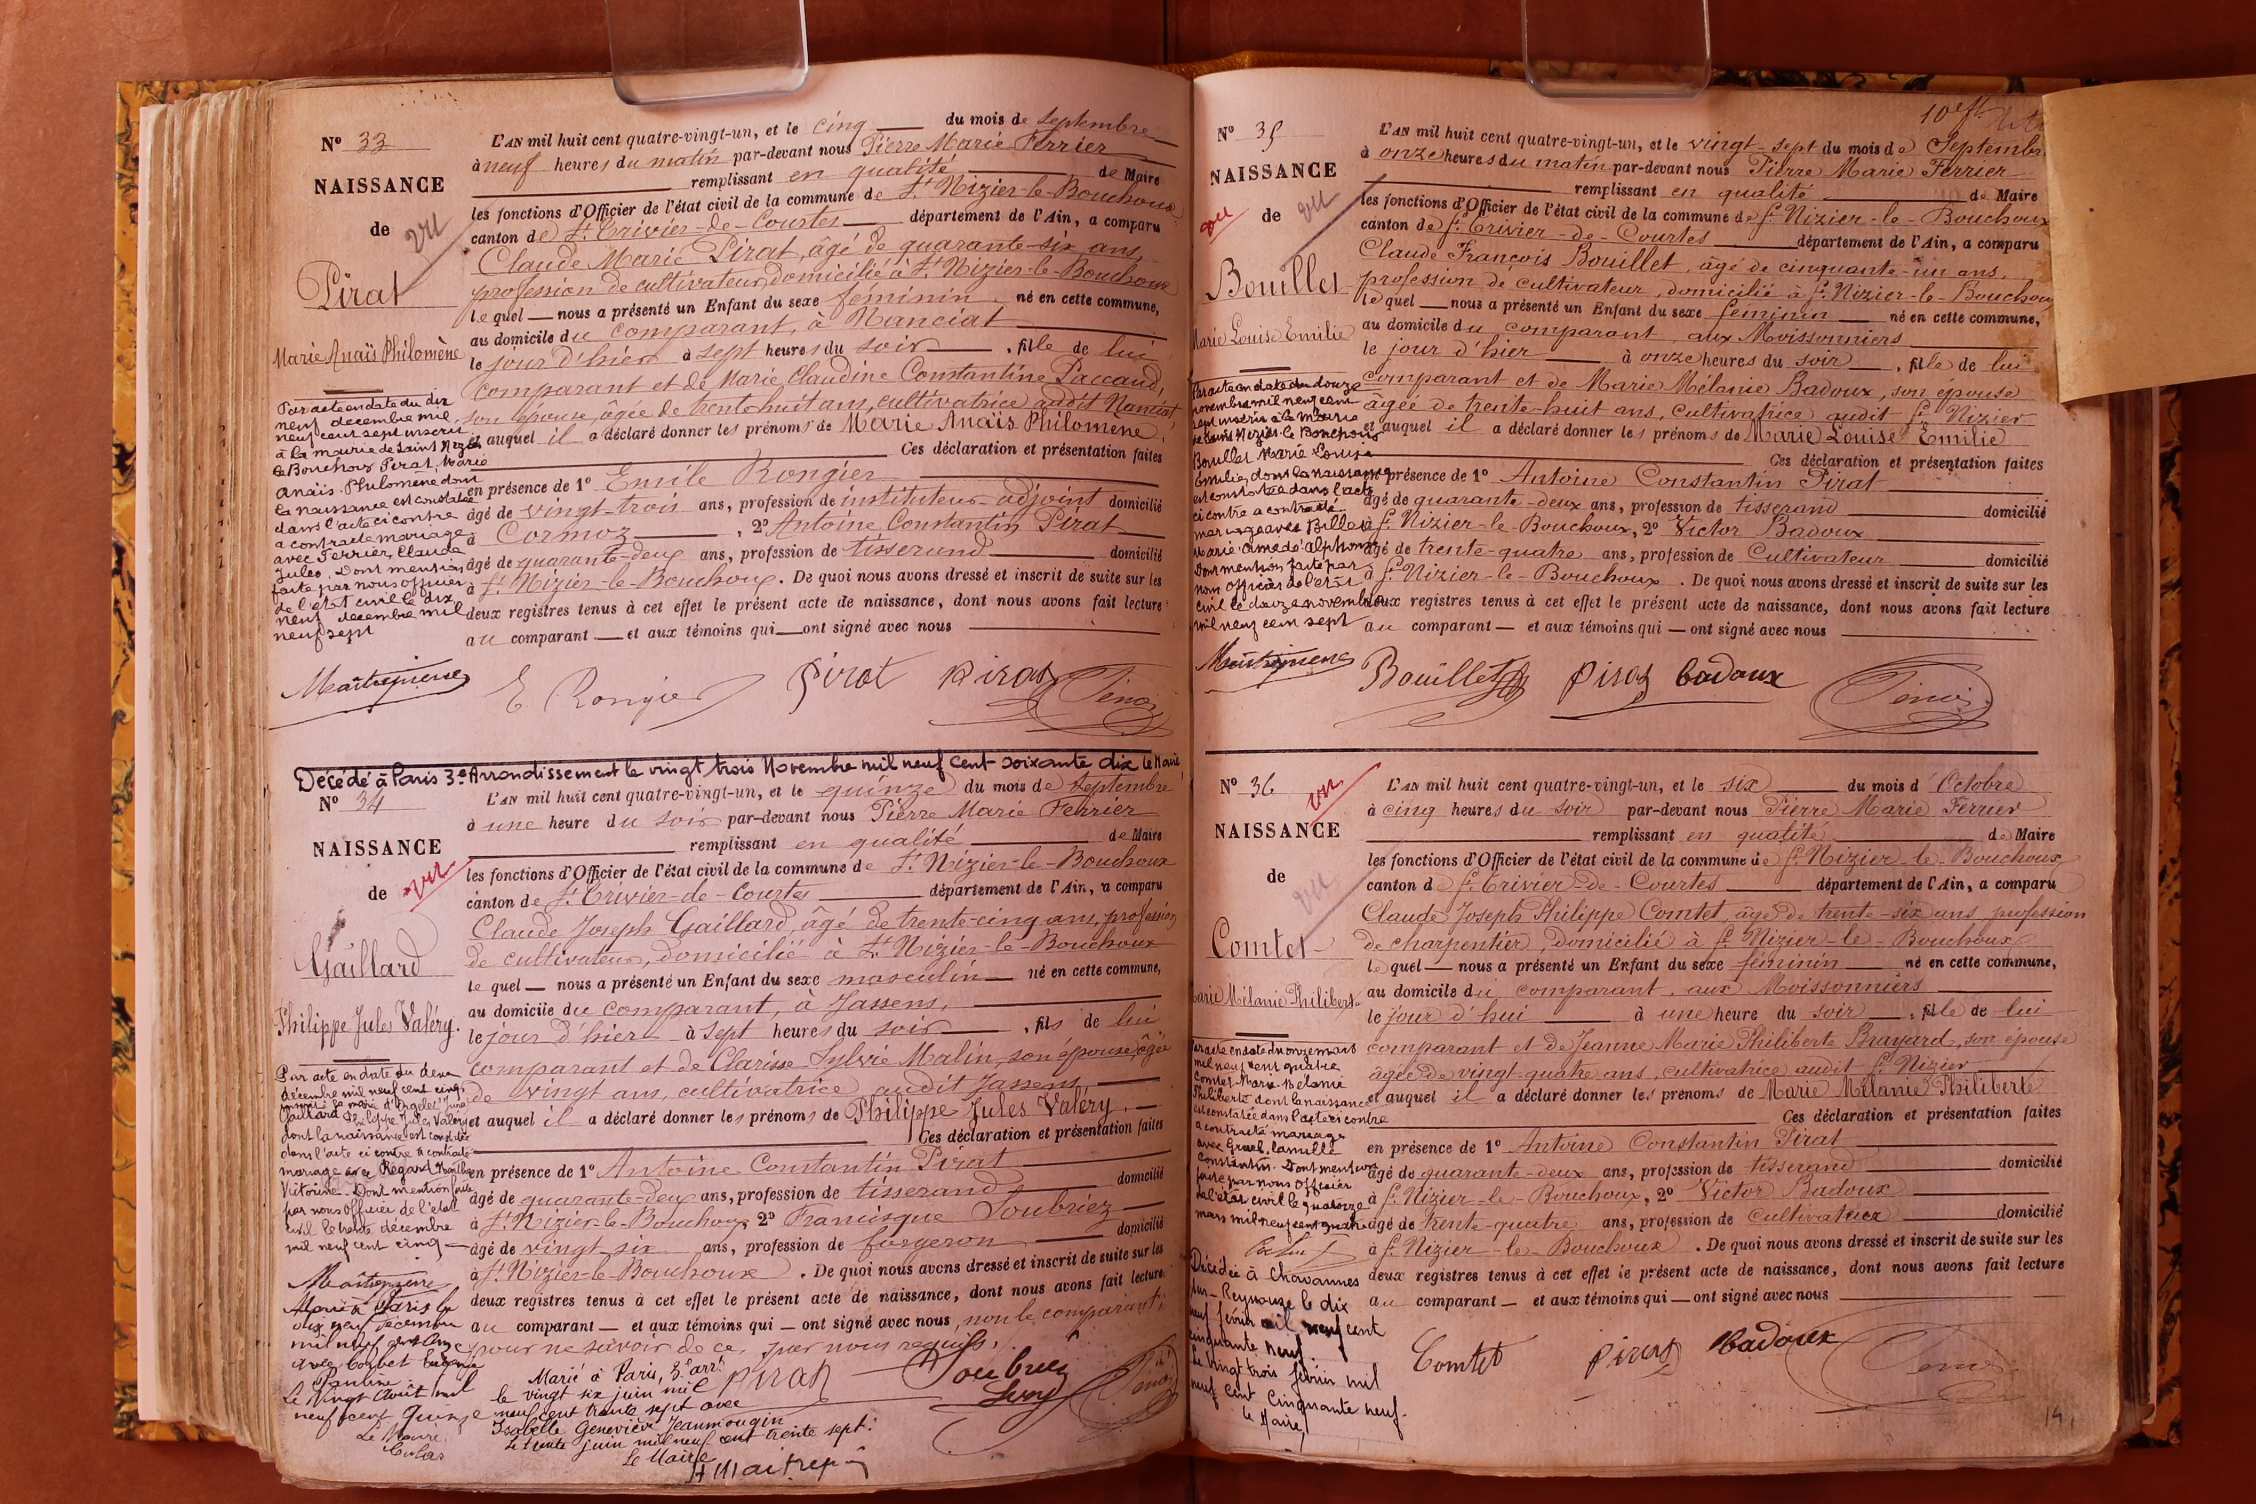 N° 33
NAISSANCE
de
vu
Pirat
Marie Anaïs Philomène
Par acte en date du dix
neuf décembre mil
neuf cent sept inscrit
à la mairie de Saint Nizier
le Bouchoux Pirat Marie
Anaïs Philomène dont
la naissance est constatée
dans l'acte ci contre
a contracté mariage
avec Ferrier, Claude
Jules. Dont mention
faite par nous officier
de l'état civil le dix
neuf decembre mil
neuf sept
L'AN mil huit cent quatre-vingt-un, et le cinq du mois de Septembre
à neuf heures du matin par-devant nous Pierre Marie Ferrier
remplissant en qualité de Maire
les fonctions d'Officier de l'état civil de la commune de St Nizier-le-Bouchoux
canton de St Trivier-de-Courtes département de l'Ain, a comparu
Claude Marie Pirat, âgé de quarante-six ans,
profession de cultivateur, domicilié à St Nizier-le-Bouchoux
lequel nous a présenté un Enfant du sexe féminin né en cette commune,
au domicile du comparant, à Nanciat
le jour d'hier à sept heures du soir, fille de lui
comparant et de Marie Claudine Constantine Paccaud,
son épouse, âgée de trente-huit ans, cultivatrice audit Nanciat,
et auquel il a déclaré donner les prénoms de Marie Anaïs Philomène,
Ces déclaration et présentation faites
en présence de 1° Emile Rongier
âgé de vingt-trois ans, profession de instituteur-adjoint domicilié
à Cormoz, 2° Antoine Constantin Pirat
âgé de quarante-deux ans, profession de tisserand domicilié
à St Nizier-le-Bouchoux. De quoi nous avons dressé et inscrit de suite sur les
deux registres tenus à cet effet le présent acte de naissance, dont nous avons fait lecture
au comparant et aux témoins qui ont signé avec nous
E Rongier Pirat Pirat
Décédé à Paris 3e Arrondissement le vingt trois Novembre mil neuf cent soixante dix le Maire
N° 34
NAISSANCE
de
vu
Gaillard
Philippe Jules Valéry.
Par acte en date du deux
décembre mil neuf cent cinq,
Gaillard Philippe Jules Valéry
dont la naissance est constatée
dans l'acte ci contre a contracté
mariage avec Regard
Victorine. Dont mention faite
par nous Officier de l'état
civil le trente décembre
mil neuf cent cinq
Marié à Paris le
dix neuf décembre
mil neuf cent onze
avec Corbet Eugénie
Pauline
Le vingt Août mil
neuf cent quinze
Le Maire
L'AN mil huit cent quatre-vingt-un, et le quinze du mois de Septembre
à une heure du soir par-devant nous Pierre Marie Ferrier
remplissant en qualité de Maire
les fonctions d'Officier de l'état civil de la commune de St Nizier-le-Bouchoux
canton de St Trivier-de-Courtes département de l'Ain, a comparu
Claude Joseph Gaillard, âgé de trente-cinq ans, profession
de cultivateur, domicilié à St Nizier-le-Bouchoux
lequel nous a présenté un Enfant du sexe masculin né en cette commune,
au domicile du comparant, à Jassens,
le jour d'hier à sept heures du soir, fils de lui
comparant et de Clarisse Sylvie Malin, son épouse, âgée
de vingt ans, cultivatrice audit Jassens
et auquel il a déclaré donner les prénoms de Philippe Jules Valéry.
Ces déclaration et présentation faites
en présence de 1° Antoine Constantin Pirat
âgé de quarante-deux ans, profession de tisserand domicilié
à St Nizier-le-Bouchoux 2° Francisque Soubriez
âgé de vingt six ans, profession de forgeron domicilié
à St Nizier-le-Bouchoux. De quoi nous avons dressé et inscrit de suite sur les
deux registres tenus à cet effet le présent acte de naissance, dont nous avons fait lecture
au comparant et aux témoins qui ont signé avec nous, non le comparant,
pour ne savoir de ce, par nous requis.
Marié à Paris, 3e arrt
le vingt six juin mil
neuf cent trente sept avec
Isabelle Geneviève Jeanmougin
Le trente juin mil neuf cent trente sept.
Le Maire
Pirat
10e ft
N° 35
NAISSANCE
vu
de
vu
Bouillet
Marie Louise Emilie
Par acte en date du douze
novembre mil neuf cent
sept inscrit à la mairie
de Saint Nizier le Bouchoux
Bouillet Marie Louise
Emilie, dont la naissance
est constatée dans l'acte
ci contre a contracté
mariage avec
Marie Amédé Alphonse
Dont mention faite par
nous officier de l'état
civil le douze novembre
mil neuf cent sept
L'AN mil huit cent quatre-vingt-un, et le vingt-sept du mois de Septembre
à onze heures du matin par-devant nous Pierre Marie Ferrier
remplissant en qualité de Maire
les fonctions d'Officier de l'état civil de la commune de St Nizier-le-Bouchoux
canton de St Trivier-de-Courtes département de l'Ain, a comparu
Claude François Bouillet, âgé de cinquante-un ans,
profession de cultivateur, domicilié à St Nizier-le-Bouchoux
lequel nous a présenté un Enfant du sexe féminin né en cette commune,
au domicile du comparant, aux Moissonniers
le jour d'hier à onze heures du soir, fille de lui
comparant et de Marie Mélanie Badoux, son épouse
âgée de trente-huit ans, cultivatrice audit St Nizier
et auquel il a déclaré donner les prénoms de Marie Louise Emilie
Ces déclaration et présentation faites
en présence de 1° Antoine Constantin Pirat
âgé de quarante-deux ans, profession de tisserand domicilié
à St Nizier-le-Bouchoux, 2° Victor Badoux
âgé de trente-quatre ans, profession de Cultivateur domicilié
à St Nizier-le-Bouchoux. De quoi nous avons dressé et inscrit de suite sur les
deux registres tenus à cet effet le présent acte de naissance, dont nous avons fait lecture
au comparant et aux témoins qui ont signé avec nous
Bouillet Pirat Badoux
N° 36
vu
NAISSANCE
de
vu
Comtet
Marie Mélanie Philiberte
Par acte en date du onze mars
mil neuf cent quatre
Comtet Marie Mélanie
Philiberte dont la naissance
est constatée dans l'acte ci contre
a contracté mariage
avec Camille
Constantin. Dont mention
faite par nous Officier
de l'état civil le quatorze
mars mil neuf cent quatre
Décédée à Chavannes
sur-Reyssouze le dix
neuf février mil neuf cent
cinquante neuf.
Le vingt trois février mil
neuf cent cinquante neuf.
le Maire
L'AN mil huit cent quatre-vingt-un, et le six du mois d'Octobre
à cinq heures du soir par-devant nous Pierre Marie Ferrier
remplissant en qualité de Maire
les fonctions d'Officier de l'état civil de la commune de St Nizier-le-Bouchoux
canton de St Trivier-de-Courtes département de l'Ain, a comparu
Claude Joseph Philippe Comtet, âgé de trente-six ans, profession
de charpentier, domicilié à St Nizier-le-Bouchoux
lequel nous a présenté un Enfant du sexe féminin né en cette commune,
au domicile du comparant, aux Moissonniers
le jour d'hui à une heure du soir, fille de lui
comparant et de Jeanne Marie Philiberte Brayard, son épouse
âgée de vingt-quatre ans, cultivatrice audit St Nizier
et auquel il a déclaré donner les prénoms de Marie Mélanie Philiberte
Ces déclaration et présentation faites
en présence de 1° Antoine Constantin Pirat
âgé de quarante-deux ans, profession de tisserand domicilié
à St Nizier-le-Bouchoux, 2° Victor Badoux
âgé de trente-quatre ans, profession de cultivateur domicilié
à St Nizier-le-Bouchoux. De quoi nous avons dressé et inscrit de suite sur les
deux registres tenus à cet effet le présent acte de naissance, dont nous avons fait lecture
au comparant et aux témoins qui ont signé avec nous
Comtet Pirat Badoux